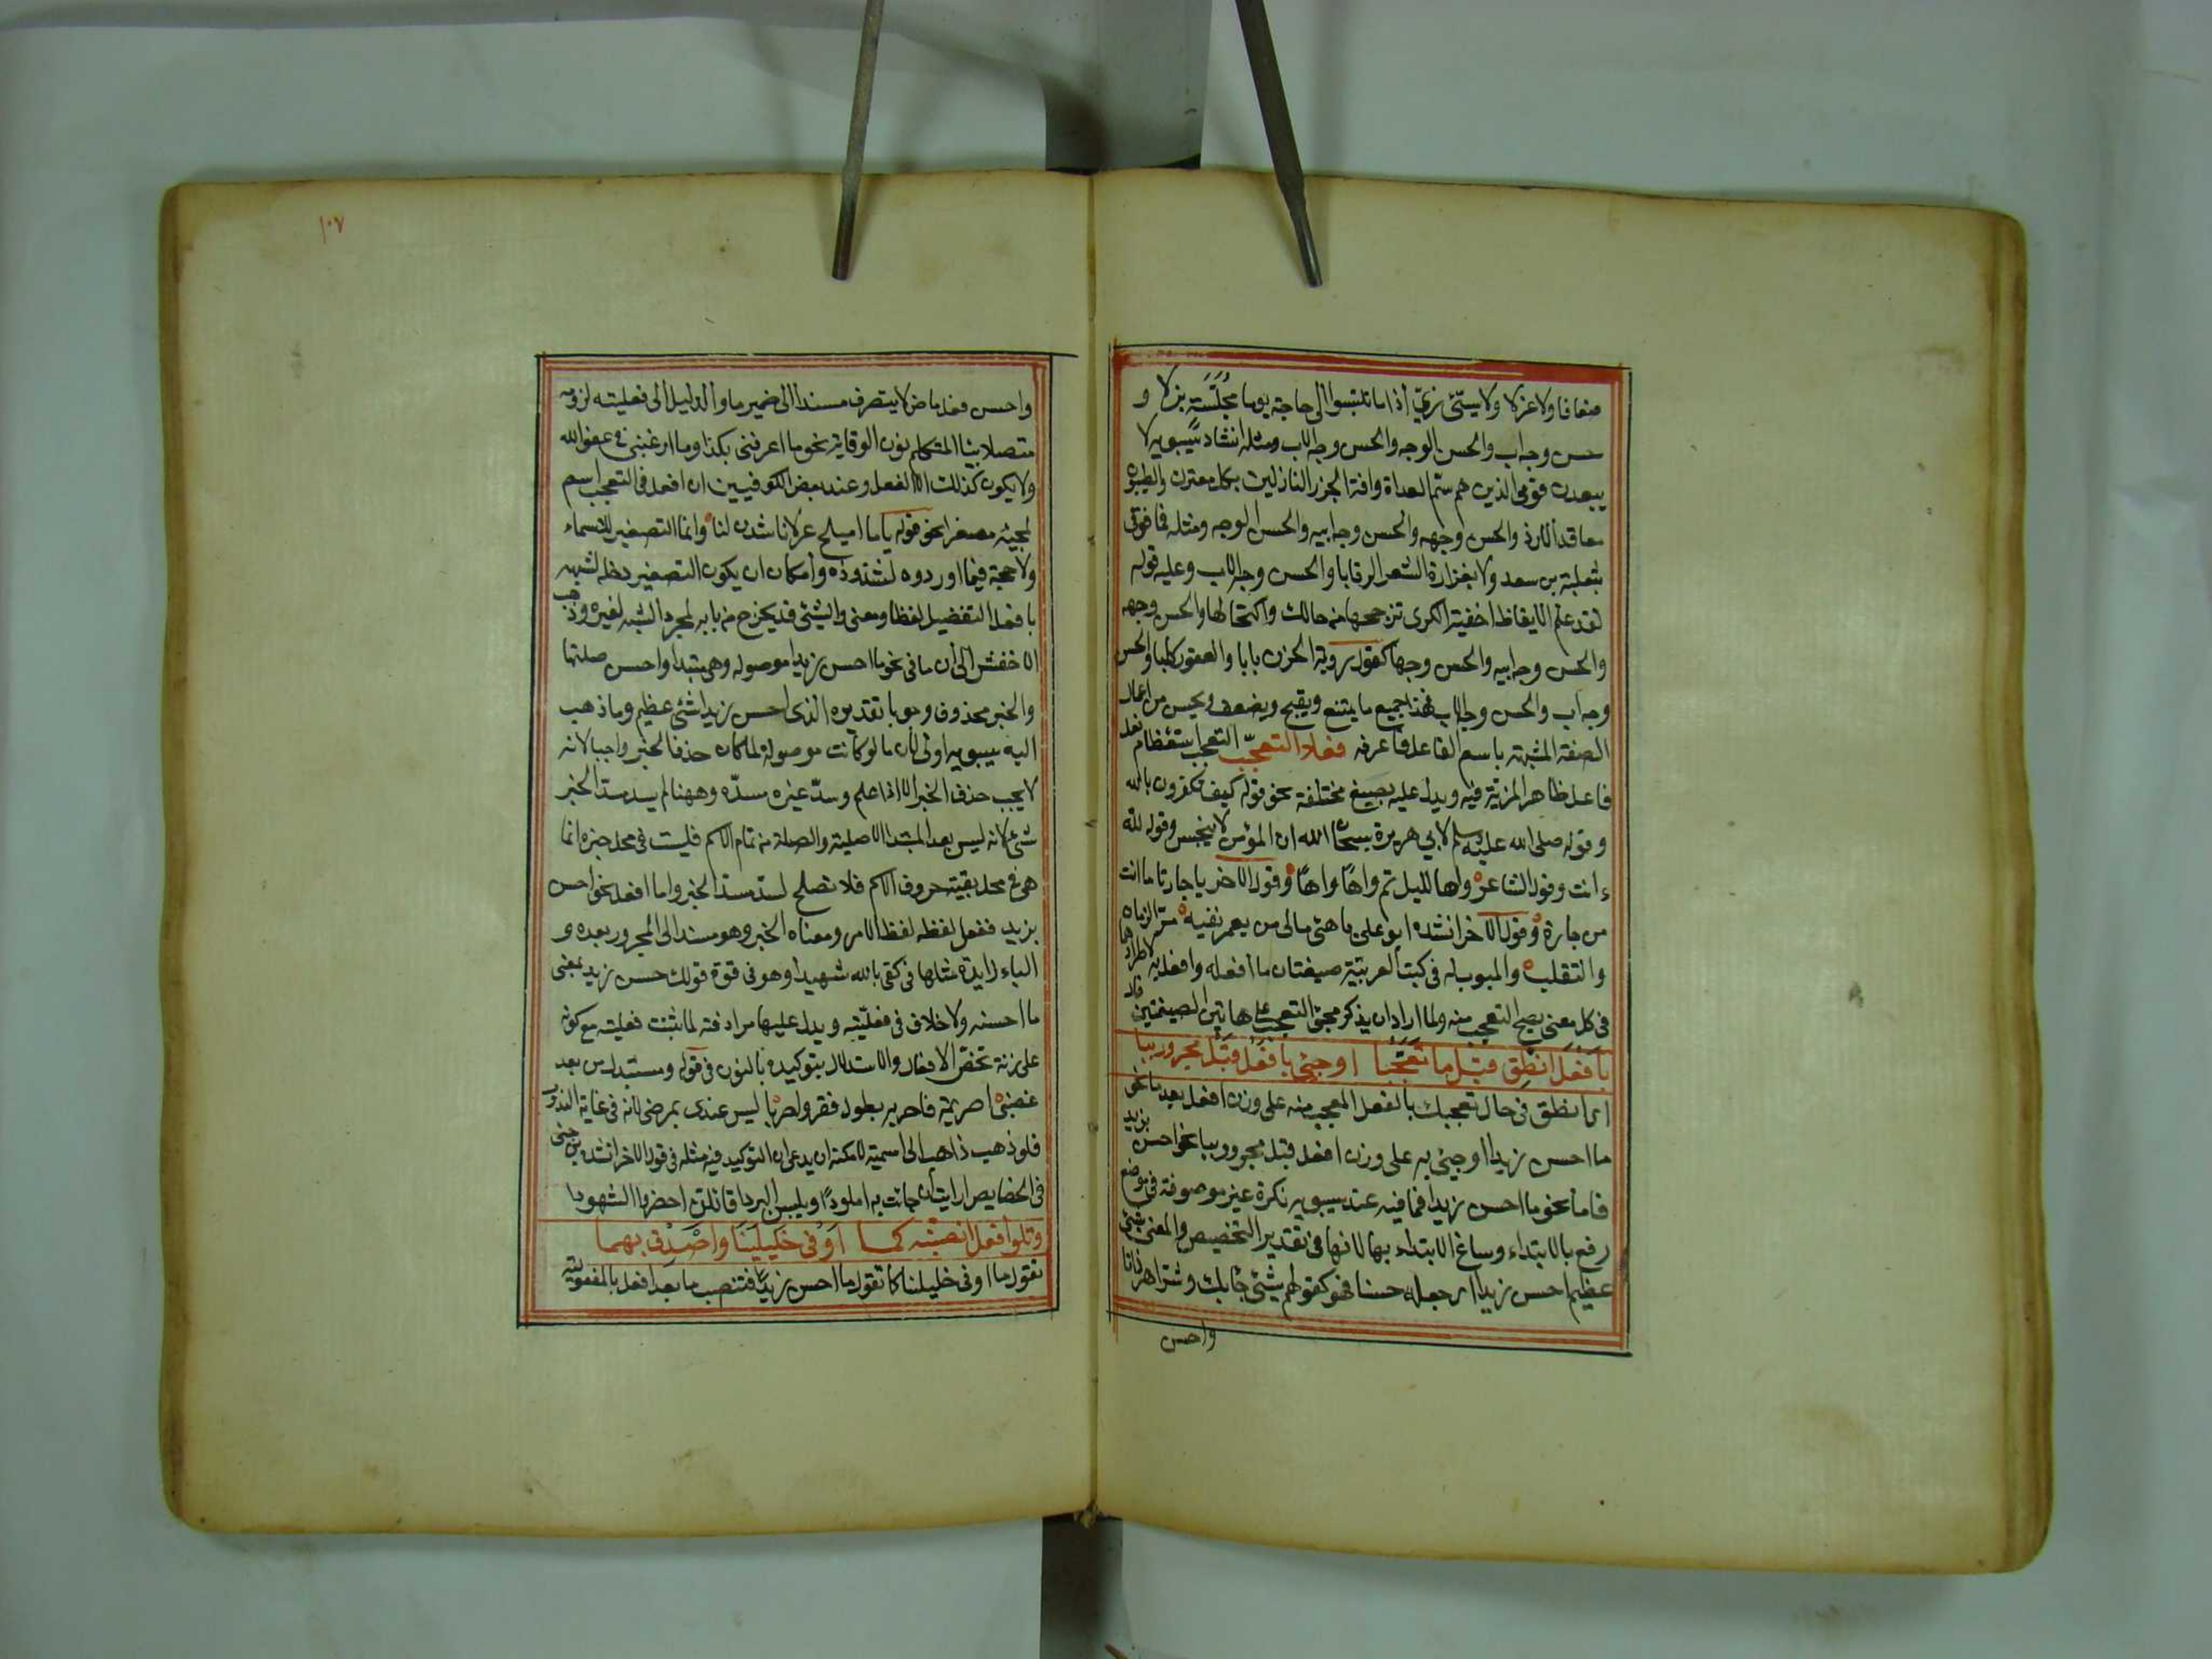 ضعافا ولا عزلا ولا سيّئي زيّ إذا ما تلبسوا إلى حاجة يوما مخيسة بزلا و
حسن وجه اب والحسن الوجه والحسن وجه الاب ومثله انشاد سيبويه لا
يبعدن قومي الذين هم سمّ العداة وافة الجزر النازلين بكل معترك والطيبون
معاقد الازر والحسن وجهه والحسن وجه ابيه والحسن الوجه ومثله فما قومي
بثعلبة بن سعد ولا بفزارة الشعر الرقابا والحسن وجه الاب وعليه قوله
لقد علم الايقاظ اخفية الكرى تزججها من حالك واكتحالها والحسن وجهه
والحسن وجه ابيه والحسن وجها كقول روبة الحزن بابا والعقور كلبا والحسن
وجه اب والحسن وجه الاب فهذا جميع ما يمتنع ويقبح ويضعف ويحسن من اعمال
الصفة المشبهة باسم الفاعل فاعرفه فعلا التعجّب التعجب استعظام فعل
فاعل ظاهر المزية فيه ويدل عليه بصيغ مختلفة نحو قوله كيف تكفرون بالله
وقوله صلى الله عليه وسلم لابي هريرة سبحان الله ان المؤمن لا ينجس وقوله لله
ءانت وقول الشاعر واها لليلى ثم واهًا واهًا وقول الاخر يا جارتا ما انت
من جارة وقول الاخر انشده ابو علي يا هيّ مالي من يعمر يفنيه مرّ الزمان
والتقليب والمبوب له في كتب العربية صيغتان ما افعله وافعل به لاطرادهما
في كل معنى يصح التعجب منه ولما اراد ان يذكر مجيّ التعجب على هاتين الصيغتين قال
بأفعل انطق بعد ما تعجّبا او جئ بأفعل قبل مجرور ببا
اي انطق في حال تعجبك بالفعل المتعجب منه على وزن افعل بعد ما نحو
ما احسن زيدا او جئ به على وزن افعل قبل مجرور ببا نحو احسن بزيد
فاما نحو ما احسن زيدا فما فيه عند سيبويه نكرة غير موصوفة في موضع
رفع بالابتداء وساغ الابتداء بها لانها في تقدير التخصيص والمعنى شئ
عظيم احسن زيدا اي جعله حسنا فهو كقولهم شئ جا بك وشر اهر ذا ناب
واحسن
١٠٧
واحسن فعل ماض لا يتصرف مسندا الى ضمير ما والدليل الى فعليته لزومه
متصلا بيا المتكلم نون الوقاية نحو ما اعرفني بكذا وما ارغبني في عفو الله
ولا يكون كذلك الا الفعل وعند بعض الكوفيين ان افعل في التعجب اسم
لمجيئه مصغرا نحو قوله ياما اميلح غزلانا شدن لنا وانما التصغير للاسماء
ولا حجة فيما اوردوه لشذوذه وامكان ان يكون التصغير دخله لشبهه
بافعل التفضيل لفظا ومعنى والشئ قد يخرج من بابه لمجرد الشبه لغيره وذهب
الاخفش الى ان ما في نحو ما احسن زيدا موصوله وهي مبتدا واحسن صلتها
والخبر محذوف وجوبا تقديره الذي احسن زيدا شئ عظيم وما ذهب
اليه سيبويه اولى لان ما لو كانت موصولة لما كان حذف الخبر واجبا لانه
لا يجب حذف الخبر الا اذا علم وسدّ غيره مسدّه وههنا لم يسد مسد الخبر
شئ لانه ليس بعد المبتدا الا صلته والصلة من تمام الاسم فليست في محل خبره انما
هي في محل بقية حروف الاسم فلا تصلح لسد مسد الخبر واما افعل نحو احسن
بزيد ففعل لفظه لفظ الامر ومعناه الخبر وهو مسند الى المجرور بعده و
الباء زايدة مثلها في كفى بالله شهيدا وهو في قوة قولك حسن زيد بمعنى
ما احسنه ولا خلاف في فعليّته ويدل عليها مرادفته لما ثبتت فعليته مع كونه
على زنة تخصّ الافعال والاستدلال بتوكيده بالنون في قوله ومستبدل من بعد
غضبى صريمة فاحر به بطول فقر واحريا ليس عندي بمرضي لانه في غاية الندور
فلو ذهب ذاهب الى اسميته لامكنه ان يدعي ان التوكيد فيه مثله في قول الاخر انشده بن جني
في الخصايص ارايت ان جائت به املودًا ويلبس البردا قائلن احضروا الشهودا
وتلو افعل انصبنه كما اوفى خليلينا وأصدق بهما
تقول ما اوفى خليلينا كما تقول ما احسن زيدًا فتنصب ما بعد افعل بالمفعولية